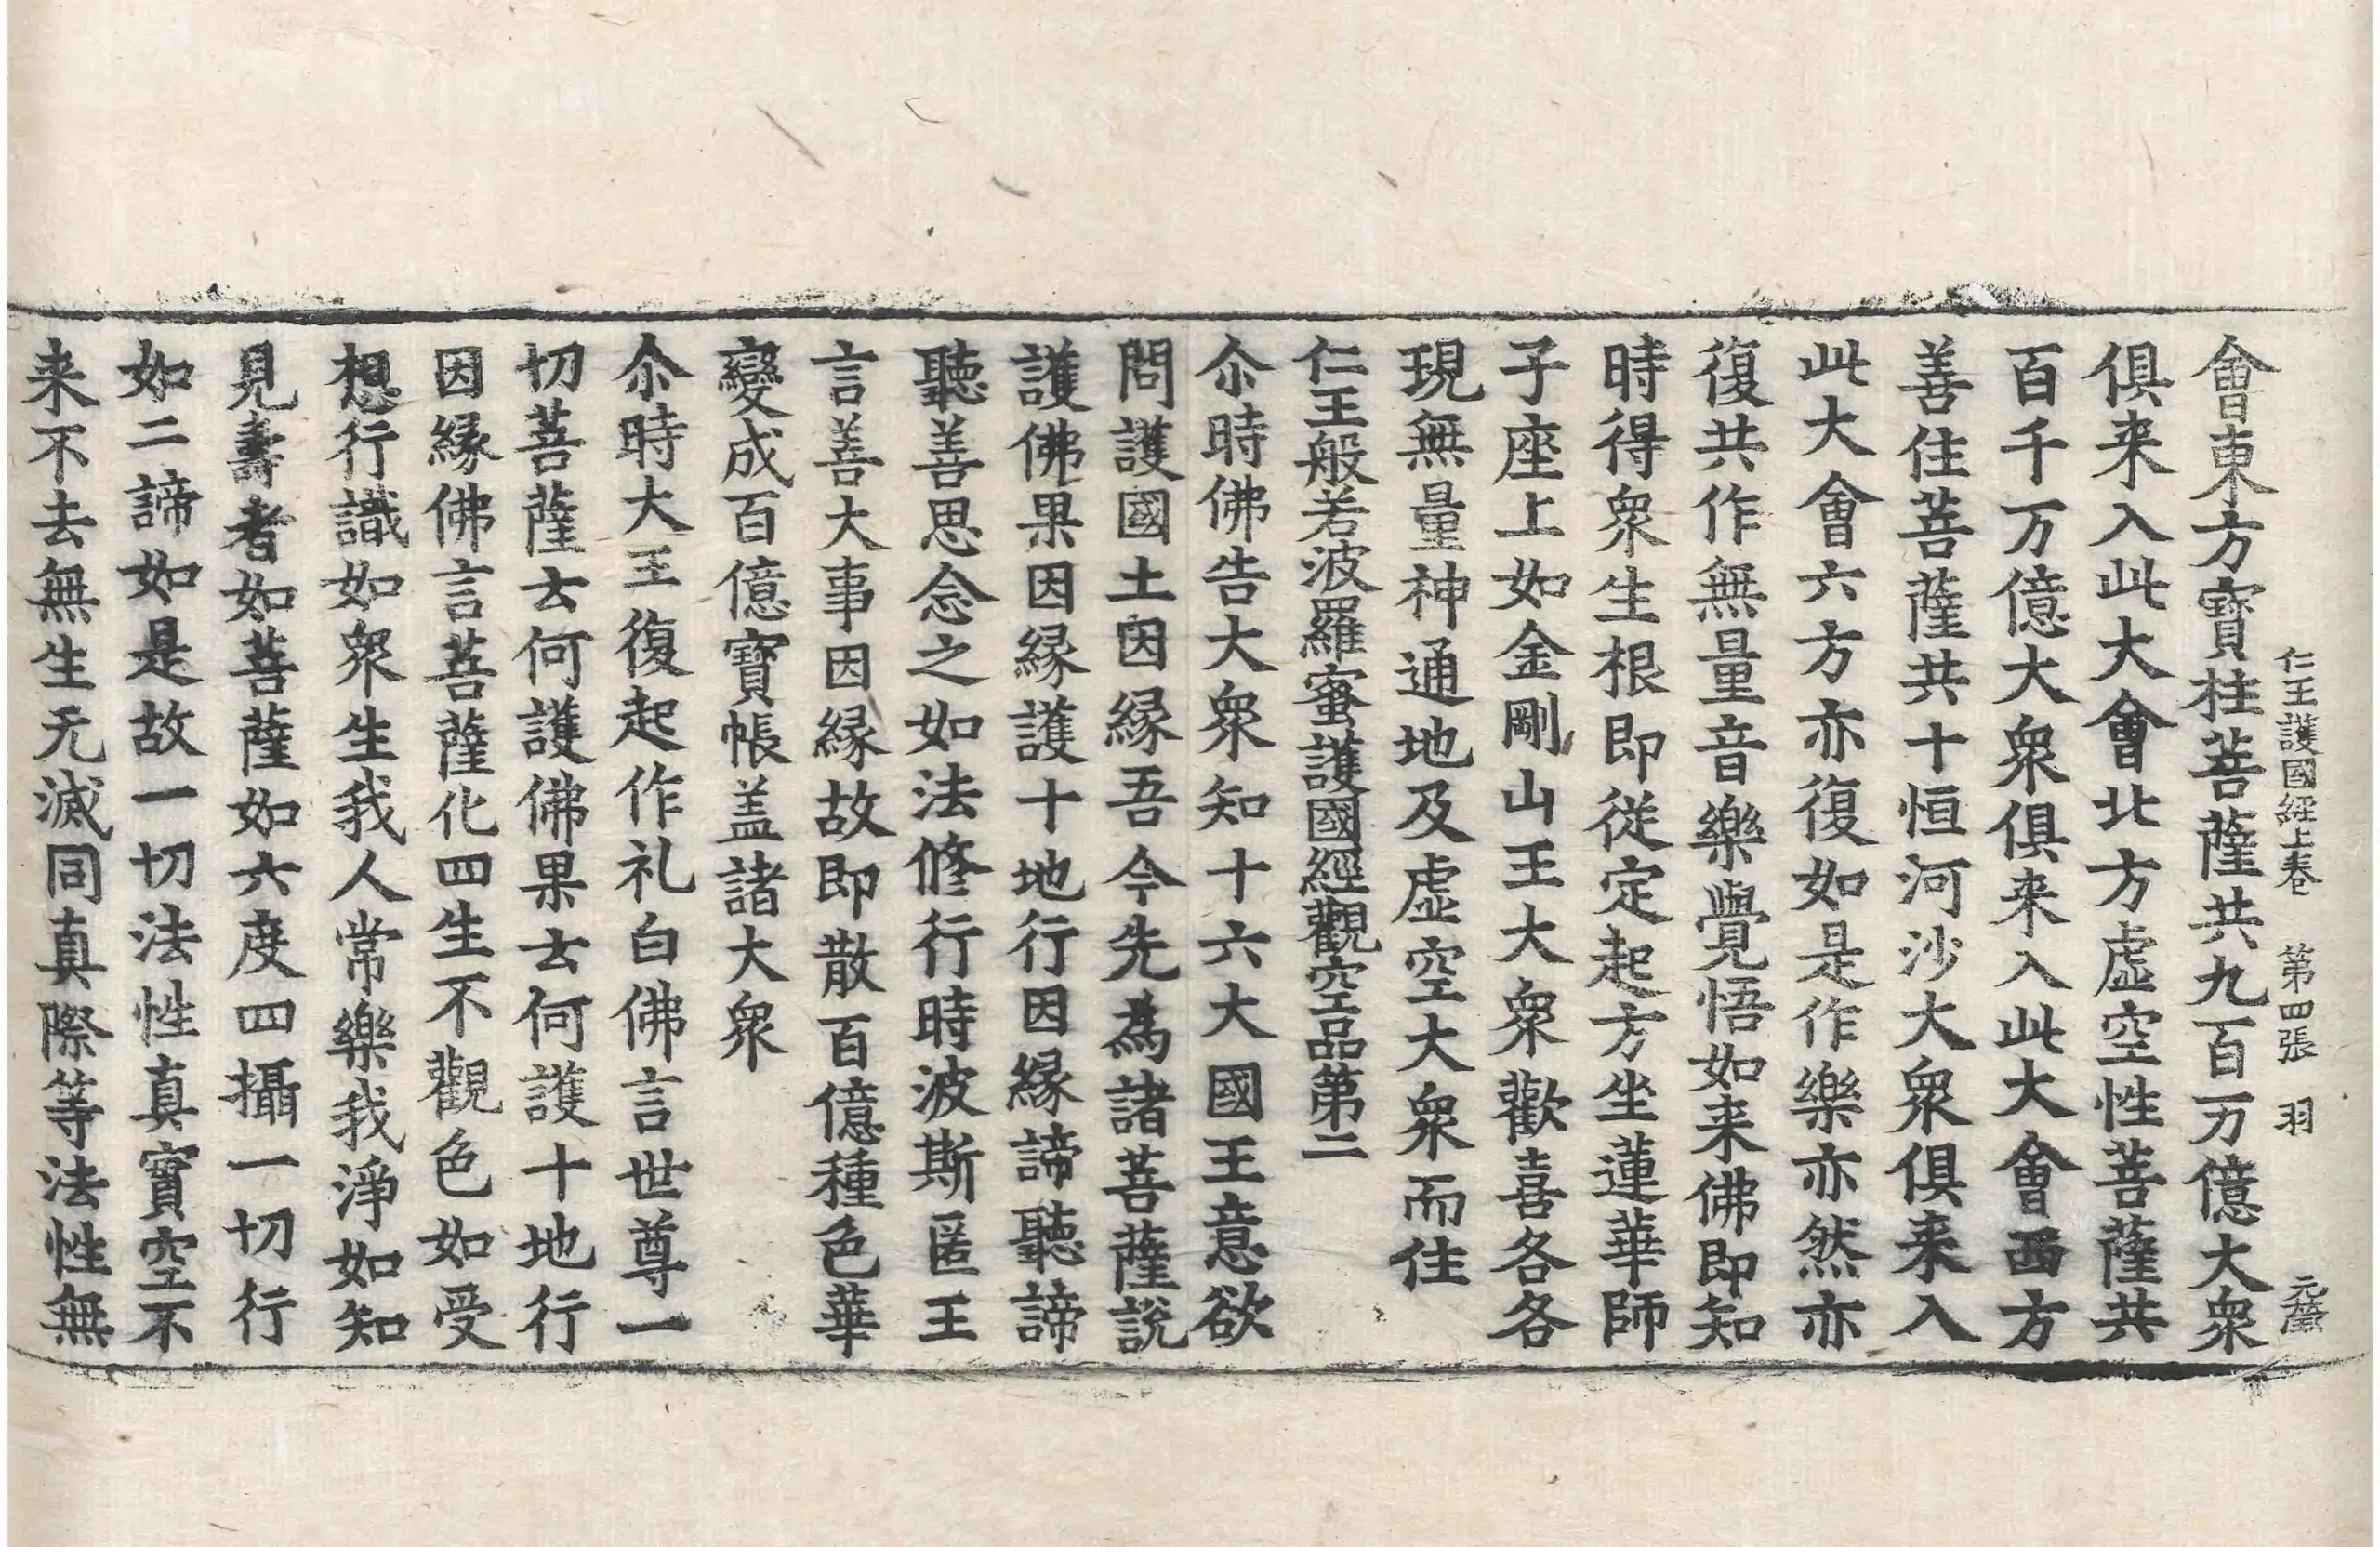 仁王護國經上卷 第四張 羽
會東方寶柱菩薩共九百万億大衆
俱来入此大會北方虛空性菩薩共
百千万億大衆俱来入此大會西方
善住菩薩共十恒河沙大衆俱来入
此大會六方亦復如是作樂亦然亦
復共作無量音樂覺悟如来佛即知
時得衆生根即従定起方坐蓮華師
子座上如金剛山王大衆歡喜各各
現無量神通地及虛空大衆而住
仁王般若波羅蜜護國經觀空品第二
尒時佛告大衆知十六大國王意欲
問護國土因縁吾今先為諸菩薩說
護佛果因縁護十地行因縁諦聽諦
聽善思念之如法修行時波斯匿王
言善大事因縁故即散百億種色華
變成百億寶帳盖諸大衆
尒時大王復起作礼白佛言世尊一
切菩薩云何護佛果云何護十地行
因縁佛言菩薩化四生不觀色如受
想行識如衆生我人常樂我淨如知
見壽者如菩薩如六度四攝一切行
如二諦如是故一切法性真實空不
来不去無生无滅同真際等法性無